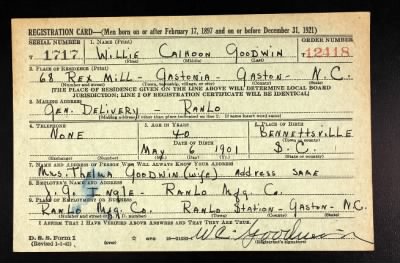 REGISTRATION CARD—(Men born on or after February 17, 1897 and on or before December 31, 1921)
SERIAL NUMBER 1. NAME (Print) ORDER NUMBER
T 1717 WILLIE CALHOON GOODWIN T 12418
(First) (Middle) (Last)
2. PLACE OF RESIDENCE (Print)
68 REX MILL - GASTONIA - GASTON - N.C.
(Number and street) (Town, township, village, or city) (County) (State)
[THE PLACE OF RESIDENCE GIVEN ON THE LINE ABOVE WILL DETERMINE LOCAL BOARD
JURISDICTION; LINE 2 OF REGISTRATION CERTIFICATE WILL BE IDENTICAL]
3. MAILING ADDRESS
GEN. DELIVERY - RANLO
[Mailing address if other than place indicated on line 2. If same insert word same]
4. TELEPHONE 5. AGE IN YEARS 6. PLACE OF BIRTH
NONE 40 BENNETTSVILLE
DATE OF BIRTH (Town or county)
MAY 6 1901 S.C.
(Mo.) (Day) (Yr.) (State or country)
7. NAME AND ADDRESS OF PERSON WHO WILL ALWAYS KNOW YOUR ADDRESS
MRS. THELMA GOODWIN (WIFE) ADDRESS SAME
8. EMPLOYER'S NAME AND ADDRESS
INGLE - RANLO MFG. CO.
9. PLACE OF EMPLOYMENT OR BUSINESS
RANLO MFG. CO. RANLO STATION - GASTON - N.C.
(Number and street or R. F. D. number) (Town) (County) (State)
I AFFIRM THAT I HAVE VERIFIED ABOVE ANSWERS AND THAT THEY ARE TRUE.
D. S. S. Form 1
(Revised 1-1-42) (over) GPO W C Goodwin
(Registrant's signature)